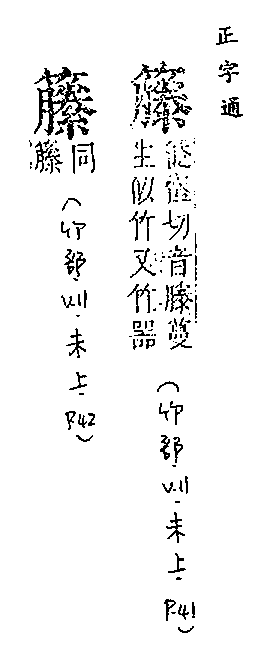 正字通
籐 徒登切音滕蔓生似竹又竹器
(竹部·V.11·未上·P.41)
籘 同籐
(竹部·V.11·未上·P.42)